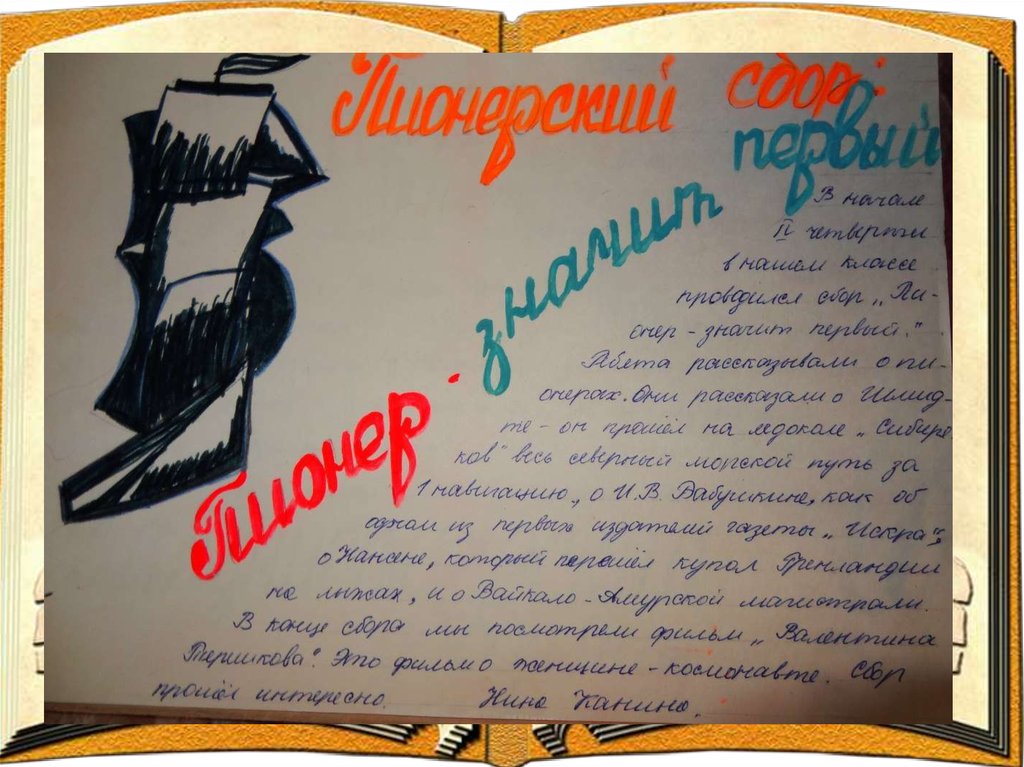 Пионерский сбор:
Пионер - значит первый
В начале
II четверти
в нашем классе
проводился сбор „Пи-
онер - значит первый."
Ребята рассказывали о пи-
онерах. Они рассказали о Шмид-
те - он прошёл на ледоколе „Сибиря
ков" весь северный морской путь за
1 навигацию, о И.В. Бабушкине, как об
одном из первых издателей газеты „Искра",
о Нансене, который перешёл купол Гренландии
на лыжах, и о Байкало-Амурской магистрали.
В конце сбора мы посмотрели фильм „Валентина
Терешкова". Это фильм о женщине-космонавте. Сбор
прошёл интересно. Нина Канина.